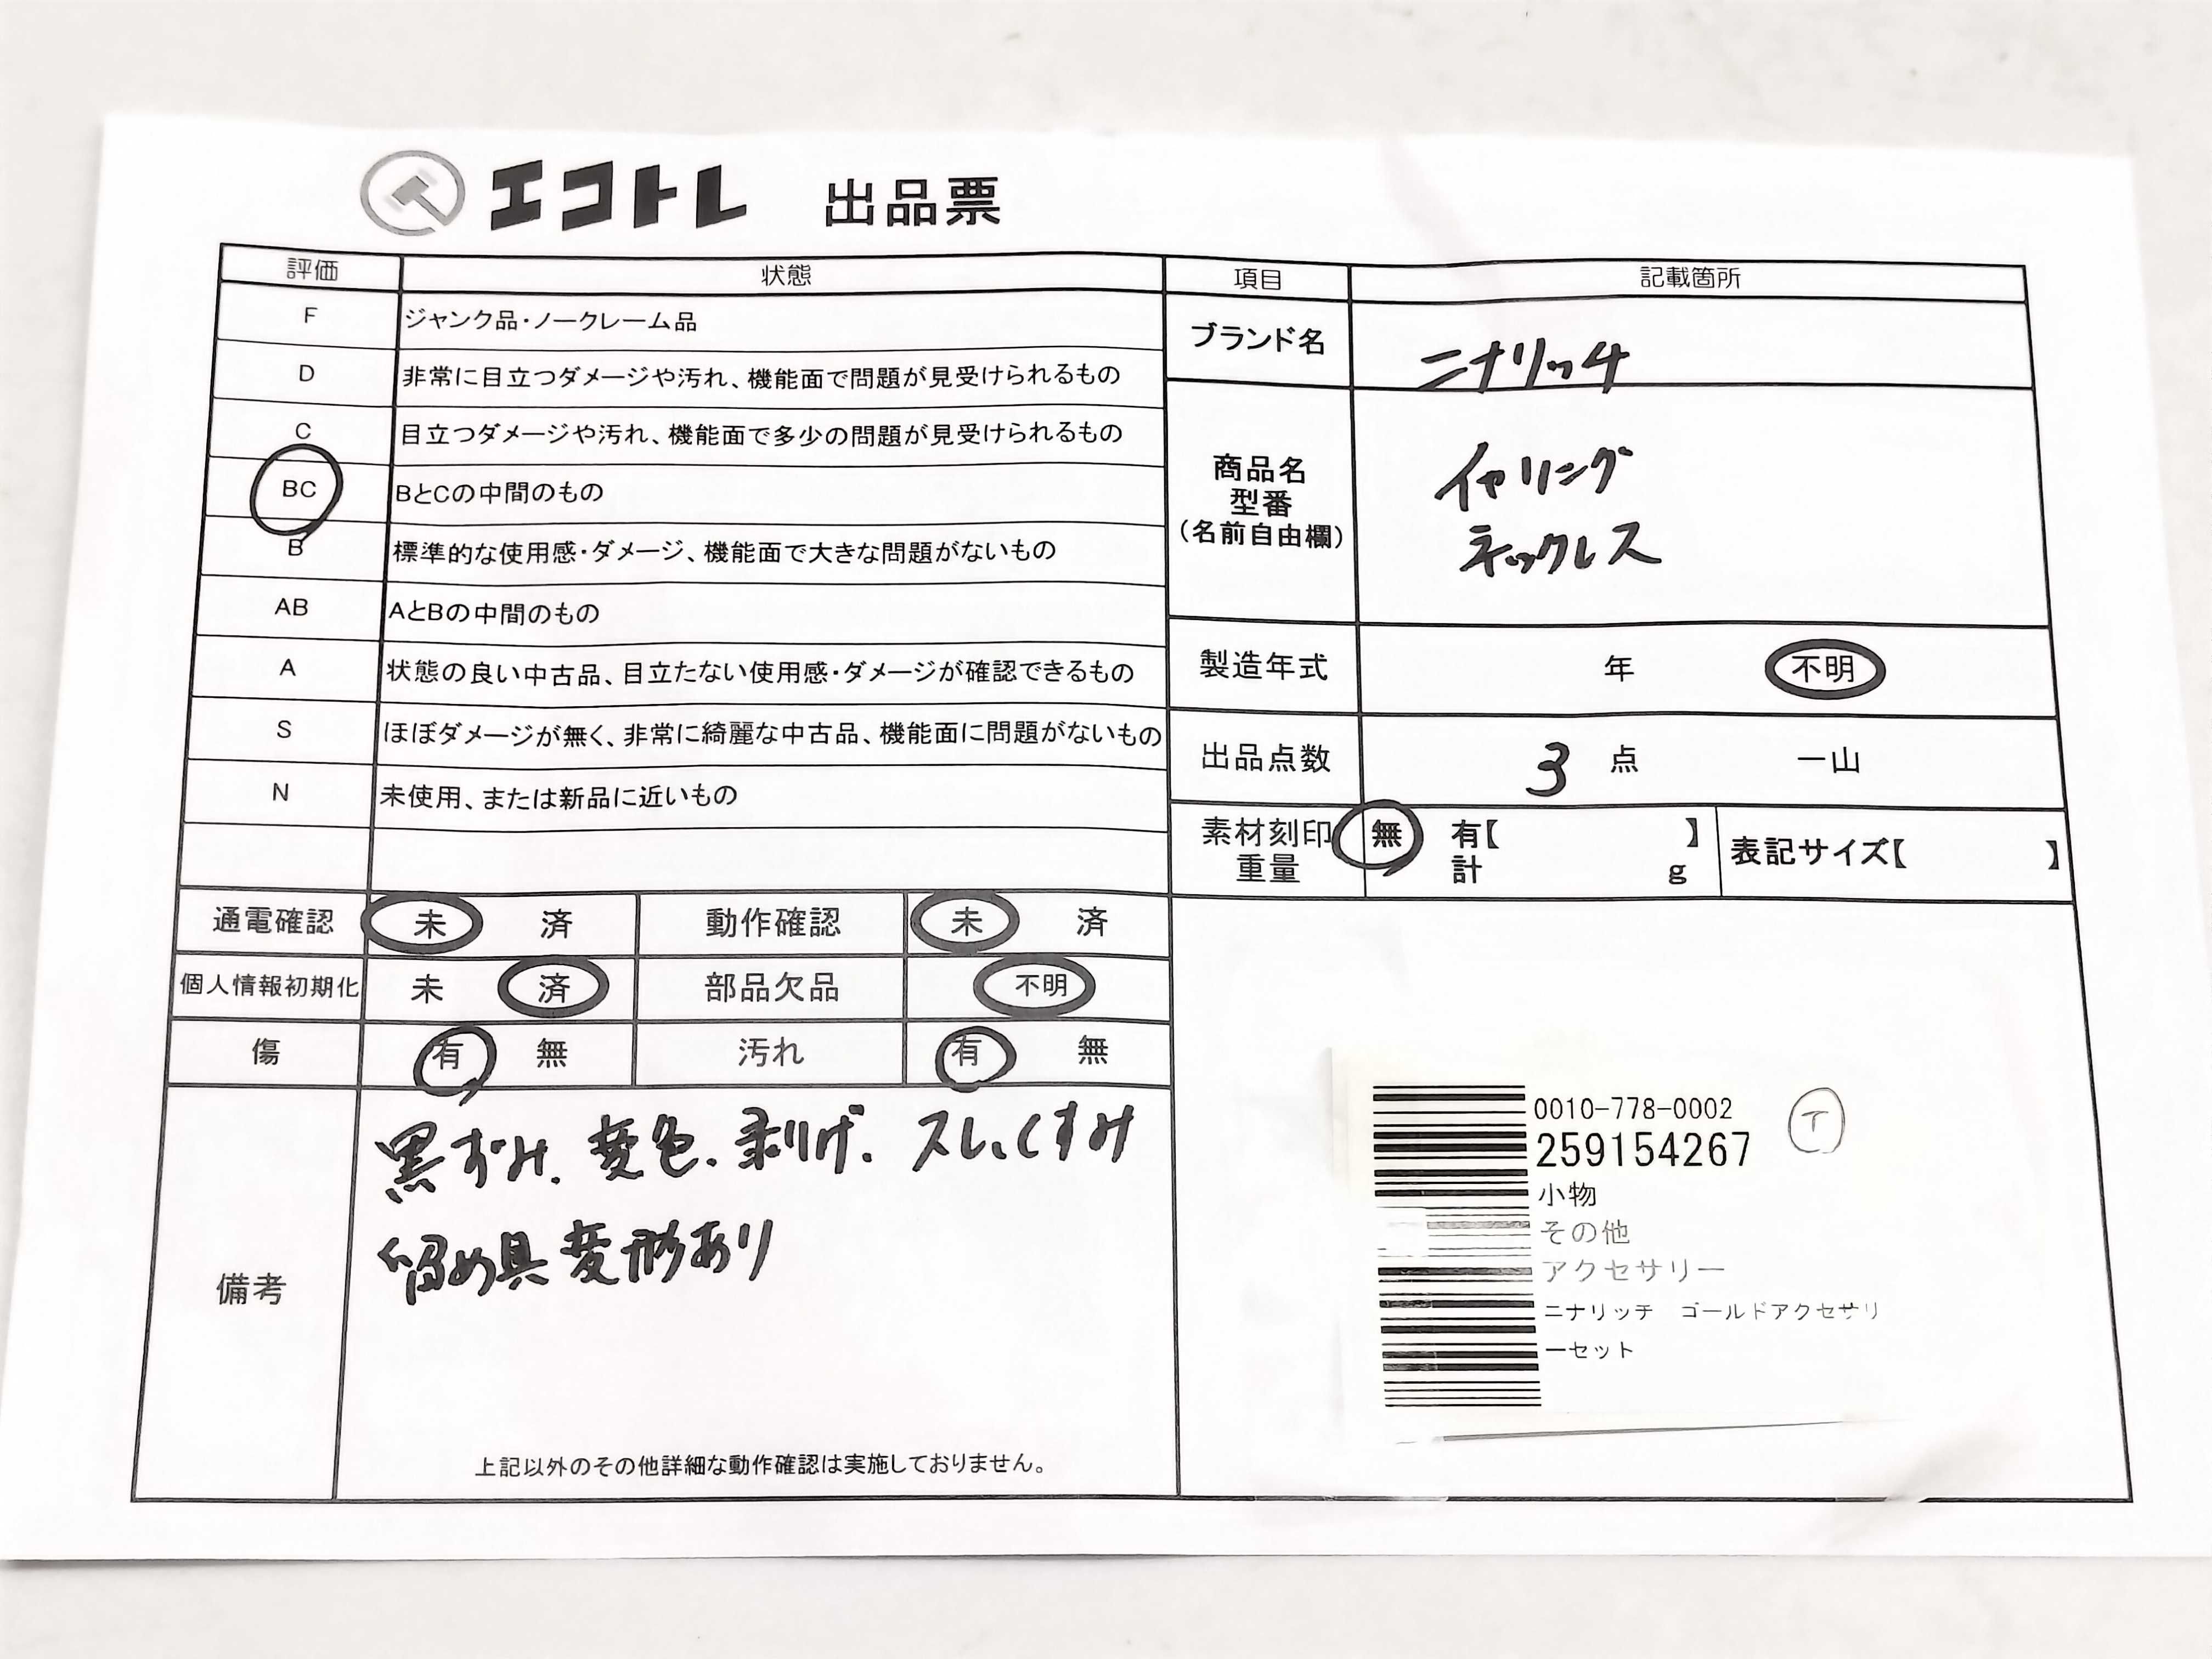 エコトレ 出品票
評価 状態
F ジャンク品・ノークレーム品
D 非常に目立つダメージや汚れ、機能面で問題が見受けられるもの
C 目立つダメージや汚れ、機能面で多少の問題が見受けられるもの
BC BとCの中間のもの
B 標準的な使用感・ダメージ、機能面で大きな問題がないもの
AB AとBの中間のもの
A 状態の良い中古品、目立たない使用感・ダメージが確認できるもの
S ほぼダメージが無く、非常に綺麗な中古品、機能面に問題がないもの
N 未使用、または新品に近いもの
通電確認 未 済 動作確認 未 済
個人情報初期化 未 済 部品欠品 不明
傷 有 無 汚れ 有 無
備考
黒ずみ、変色、剥げ、スレ、くすみ
留め具変形あり
上記以外のその他詳細な動作確認は実施しておりません。
項目 記載箇所
ブランド名 ニナリッチ
商品名
型番
(名前自由欄)
イヤリング
ネックレス
製造年式 年 不明
出品点数 3 点 一山
素材刻印 無 有【 】
重量 計 g
表記サイズ【 】
0010-778-0002
T
259154267
小物
その他
アクセサリー
ニナリッチ ゴールドアクセサリ
ーセット